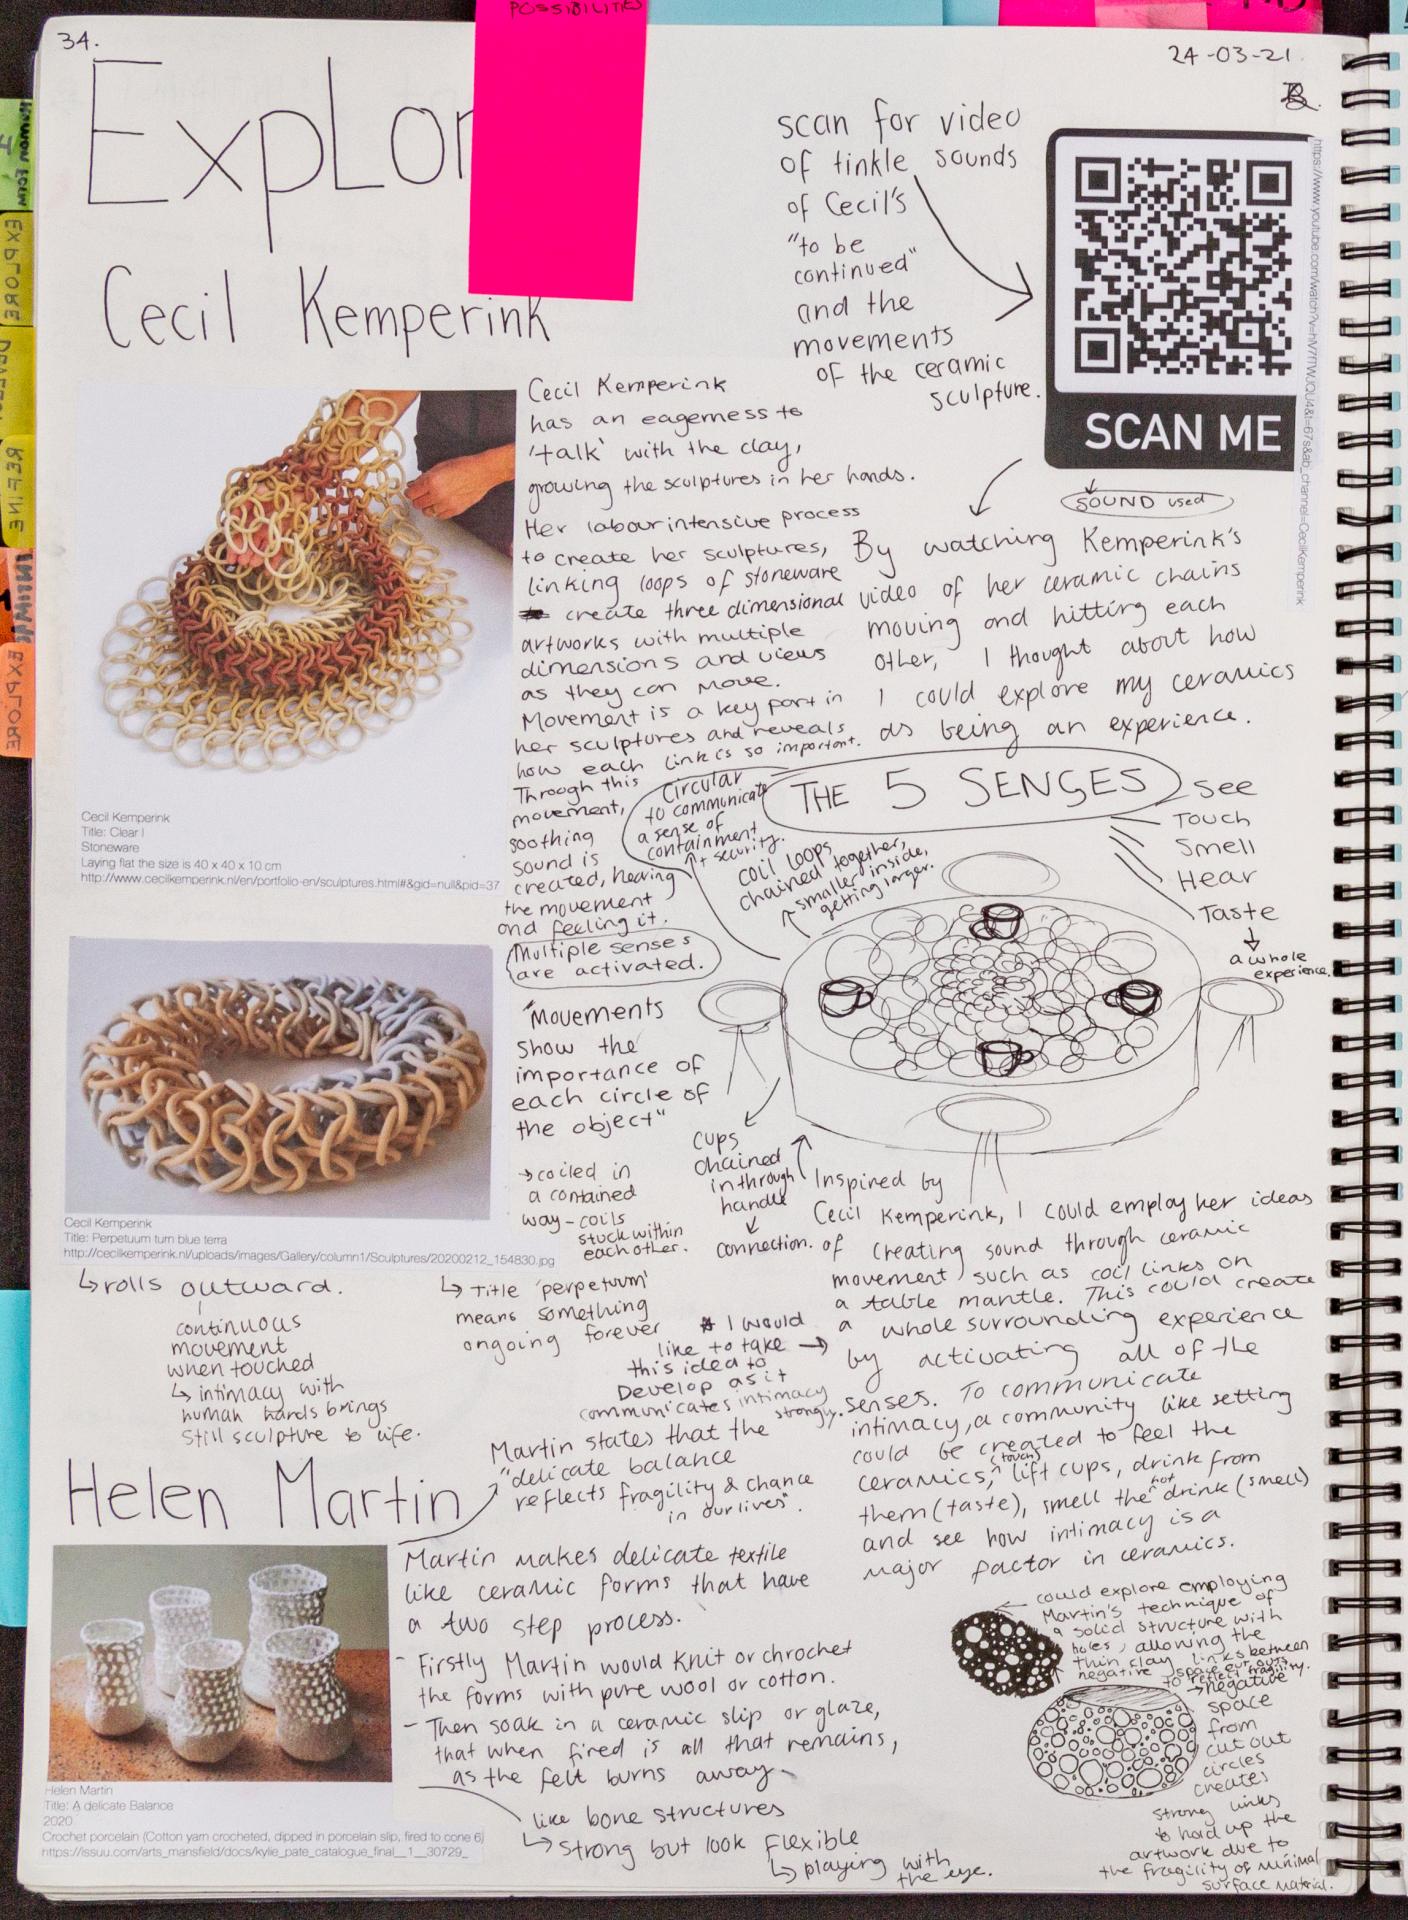 34.
24-03-21.
POSSIBILITIES
Explor
Cecil Kemperink
scan for video
of tinkle sounds
of Cecil's
"to be
continued"
and the
movements
of the ceramic
sculpture.
SCAN ME
SOUND used
Cecil Kemperink
has an eagerness to
'talk' with the clay,
growing the sculptures in her hands.
Her labour intensive process
to create her sculptures,
linking loops of stoneware
create three dimensional
artworks with multiple
dimensions and views
as they can move.
Movement is a key part in
her sculptures and reveals
how each link is so important.
Through this
movement,
soothing
sound is
created, hearing
the movement
and feeling it.
Multiple senses
are activated.
By watching Kemperink's
video of her ceramic chains
moving and hitting each
other, I thought about how
I could explore my ceramics
as being an experience.
THE 5 SENSES
See
Touch
Smell
Hear
Taste
a whole
experience.
Circular
to communicate
a sense of
containment
+ security.
coil loops
chained together,
smaller inside,
getting larger.
Cecil Kemperink
Title: Clear I
Stoneware
Laying flat the size is 40 x 40 x 10 cm
http://www.cecilkemperink.nl/en/portfolio-en/sculptures.html#&gid=null&pid=37
"Movements
show the
importance of
each circle of
the object"
→ coiled in
a contained
way - coils
stuck within
each other.
cups
chained
in through
handle
connection.
Cecil Kemperink
Title: Perpetuum turn blue terra
http://cecilkemperink.nl/uploads/images/Gallery/column1/Sculptures/20200212_154830.jpg
↳ rolls outward.
continuous
movement
when touched
↳ intimacy with
human hands brings
still sculpture to life.
↳ Title 'perpetuum'
means something
ongoing forever
* I would
like to take →
this idea to
Develop as it
communicates intimacy
strongly.
Inspired by
Cecil Kemperink, I could employ her ideas
of creating sound through ceramic
movement, such as coil links on
a table mantle. This could create
a whole surrounding experience
by activating all of the
senses. To communicate
intimacy, a community like setting
could be created to feel the
ceramics, (touch) lift cups, drink from
them (taste), smell the hot drink (smell)
and see how intimacy is a
major factor in ceramics.
Helen Martin
Martin states that the
"delicate balance
reflects fragility & chance
in our lives".
Martin makes delicate textile
like ceramic forms that have
a two step process.
- Firstly Martin would knit or chrochet
the forms with pure wool or cotton.
- Then soak in a ceramic slip or glaze,
that when fired is all that remains,
as the felt burns away.
like bone structures
↳ strong but look flexible
↳ playing with
the eye.
Helen Martin
Title: A delicate Balance
2020
Crochet porcelain (Cotton yarn crocheted, dipped in porcelain slip, fired to cone 6)
https://issuu.com/arts_mansfield/docs/kylie_pate_catalogue_final__1__30729_
could explore employing
Martin's technique of
a solid structure with
holes, allowing the
thin clay links between
negative space cut outs
to reflect fragility.
→ negative
space
from
cut out
circles
creates
strong links
to hold up the
artwork due to
the fragility of minimal
surface material.
EXPLORE
REFINE
EXPLORE